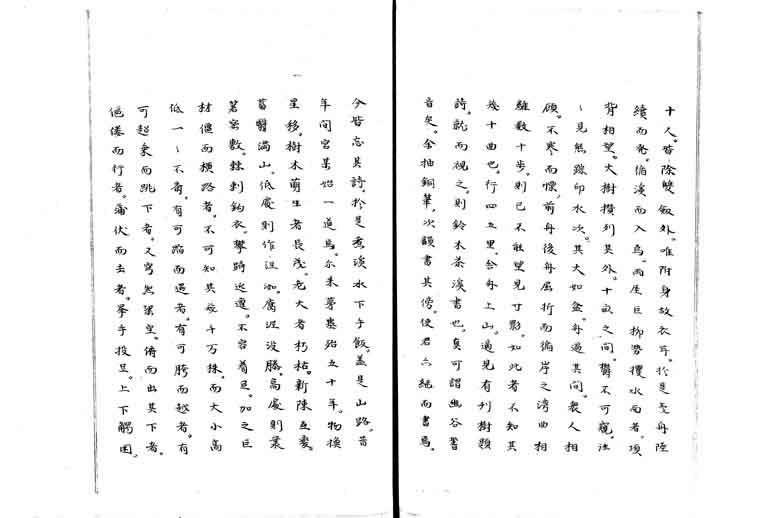 十人。皆除雙劔外。唯附身放衣耳。於是受舟陸
續而発。傍溪而入焉。兩崖巨柳勢攫水面者。項
背相望。大樹攅列其外。十畝之間。欝不可窺。注
〻見熊跡印水次。其大如盆。舟過其間。衆人相
顧。不寒而慄。前舟後舟屈折而傍岸之湾曲相
離数十歩。則已不能望見寸影。如此者不知其
幾十曲也。行四五里。舎舟上山。適見有刋樹題
詩。就而視之。則鈴木茶溪書也。真可謂幽谷跫
音矣。余抽銅筆。次韻書其傍。使君亦絶而書焉。
今皆忘其詩。於是煮溪水下午飯。蓋是山路。昔
年間宮某始一道焉。尓来夢墓殆五十年。物換
星移。樹木萌生者長茂。老大者朽枯。新陳互變。
蓊翳満山。低處則作沮洳。腐泥没膝。高處則叢
篶密数。棘刺鈎衣。攀躋迍邅。不容着足。加之巨
材偃而横路者。不可知其幾千万株。而大小高
低一〻不斉。有可踰而過者。有可胯而越者。有
可超乗而跳下者。又穹然架空。俯而出其下者。
傴僂而行者。蒲伏而去者。挙手投足。上下觸困。